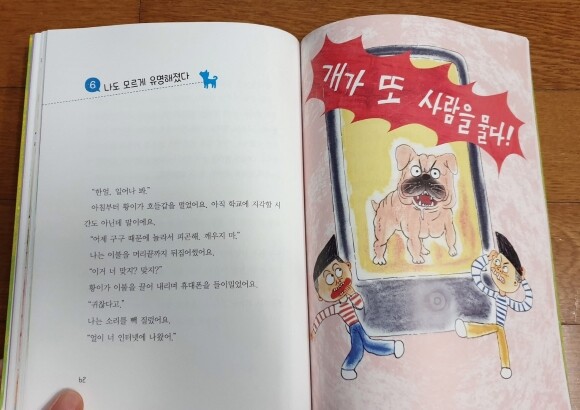 6 나도 모르게 유명해졌다
"한얼, 일어나 봐."
아침부터 황이가 호들갑을 떨었어요. 아직 학교에 지각할 시
간도 아닌데 말이에요.
"어제 구구 때문에 놀라서 피곤해. 깨우지 마."
나는 이불을 머리끝까지 뒤집어썼어요.
"이거 너 맞지? 맞지?"
황이가 이불을 끌어 내리며 휴대폰을 들이밀었어요.
"귀찮다고."
나는 소리를 빽 질렀어요.
"형이 너 인터넷에 나왔어."
개가 또 사람을 물다!